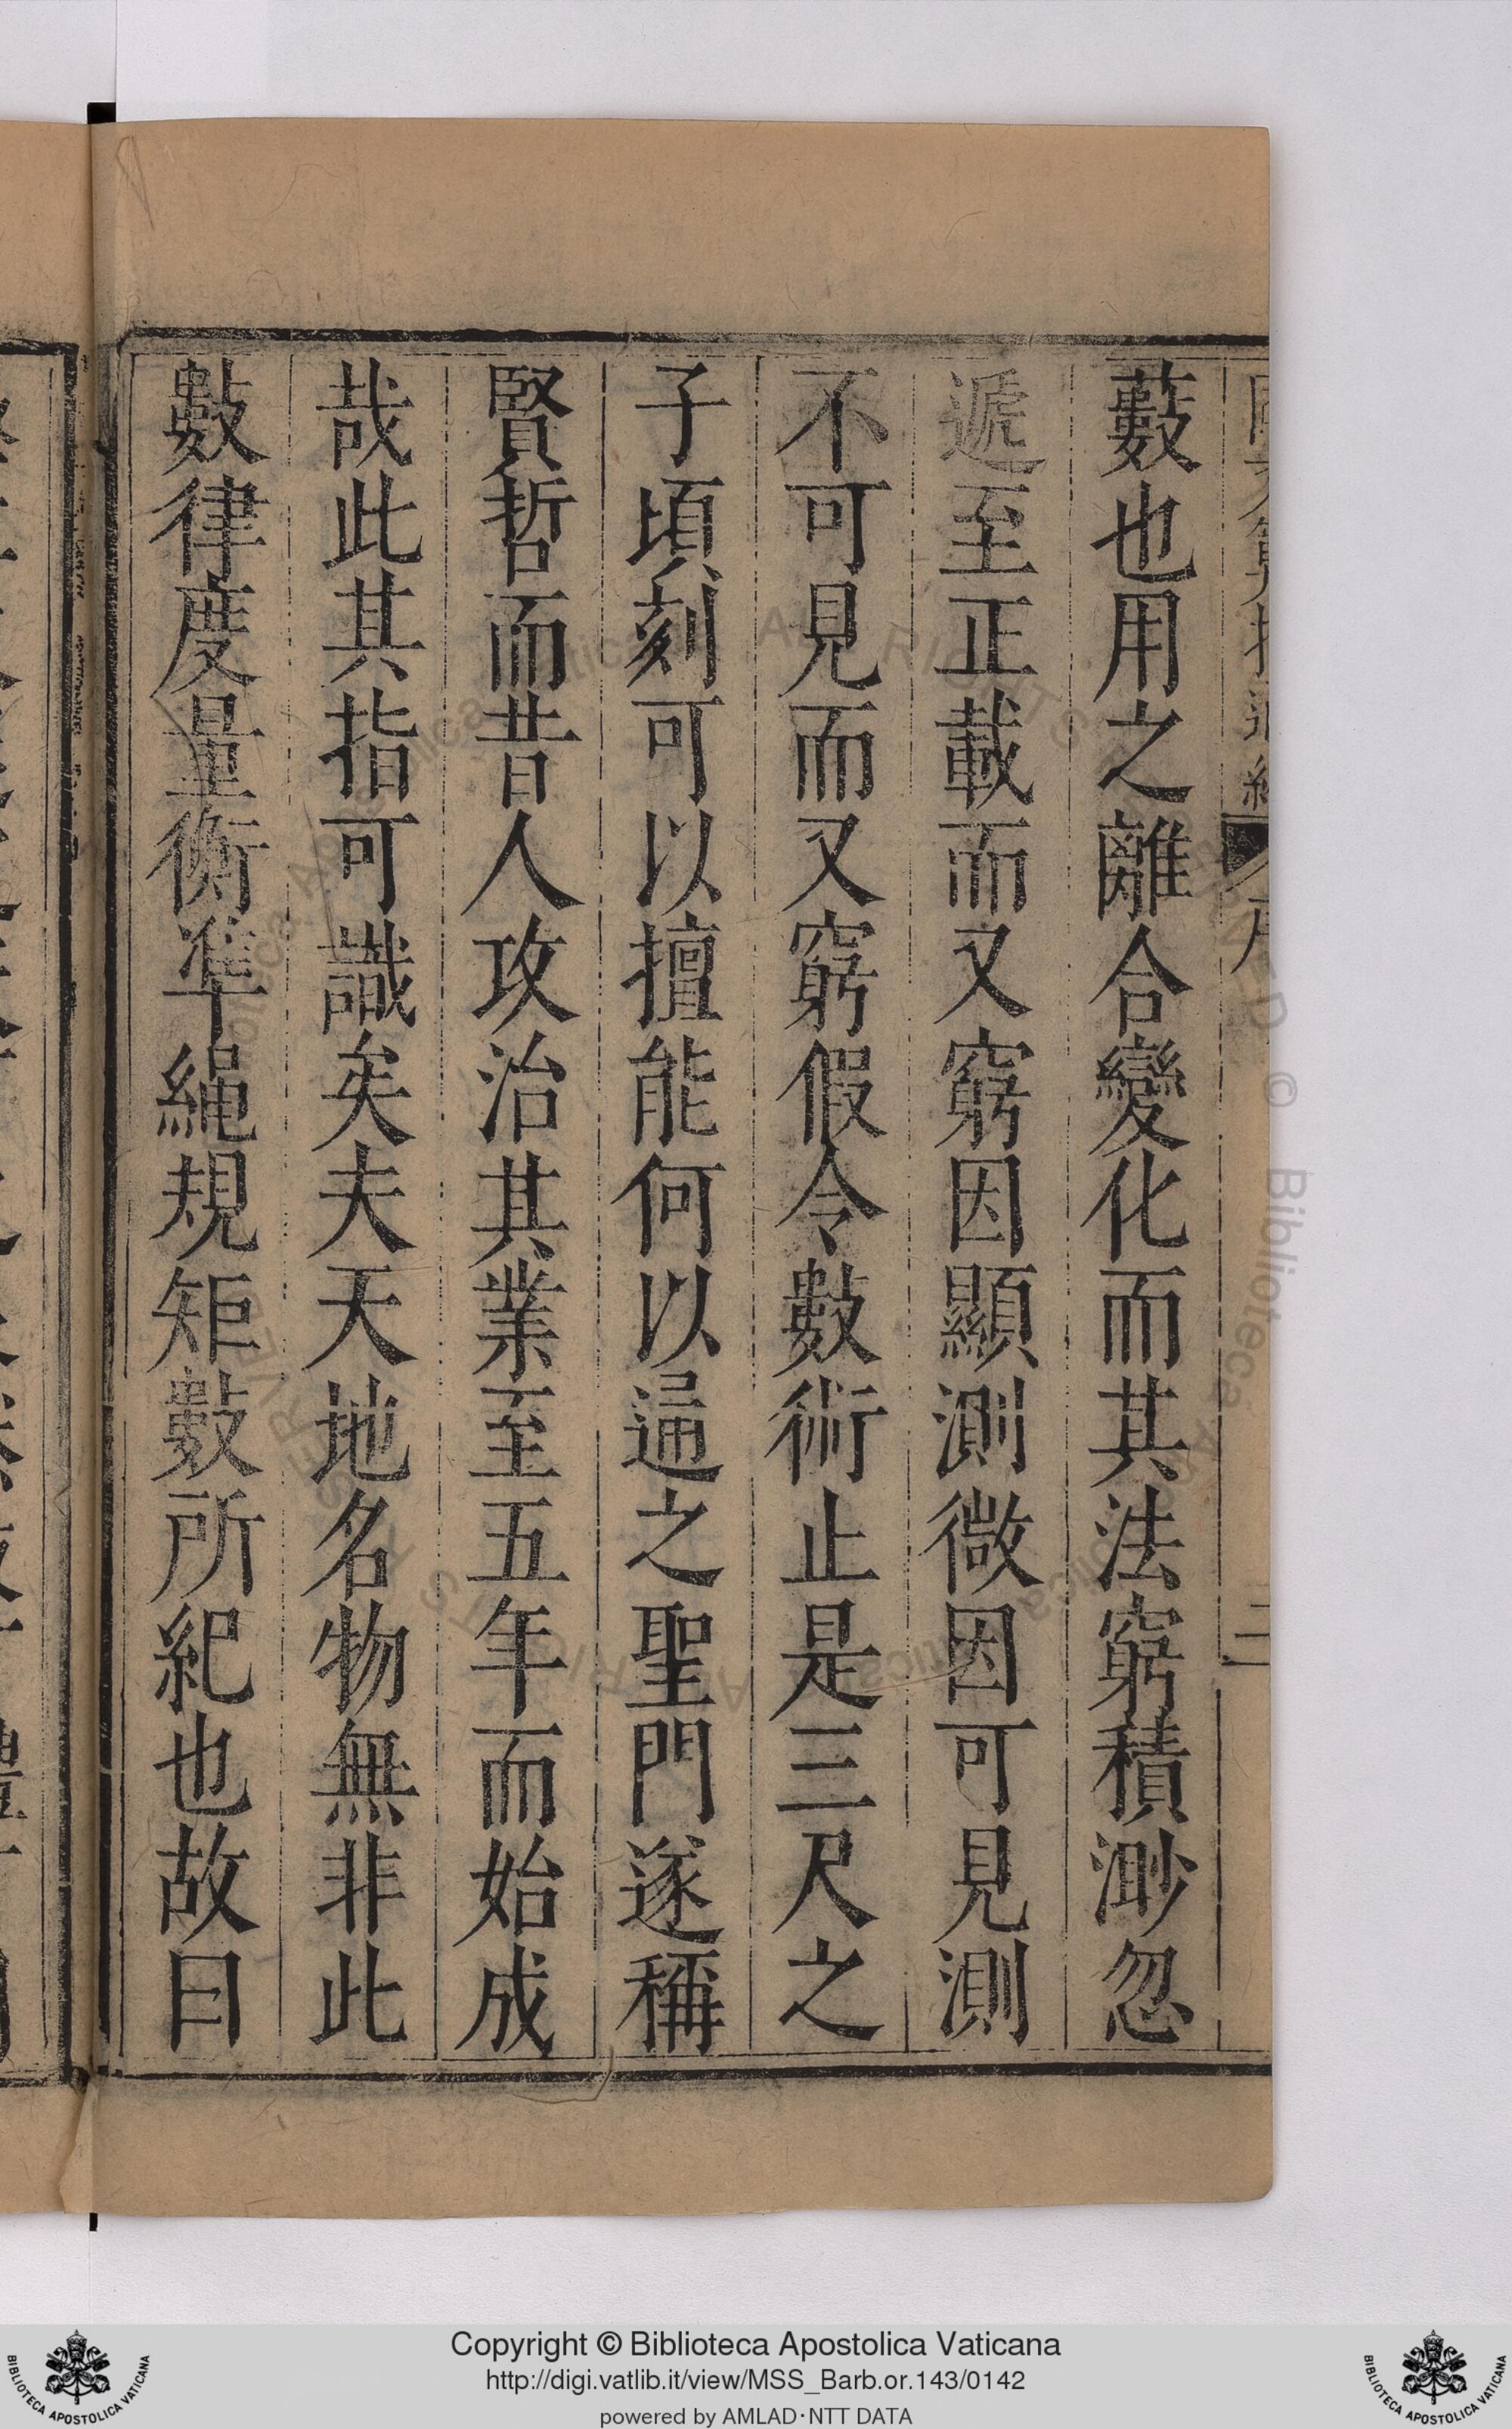 藪也用之離合變化而其法窮積渺忽
遞至正載而又窮因顯測微因可見測
不可見而又窮假令數術止是三尺之
子頃刻可以擅能何以逼之聖門遂稱
賢哲而昔人攻治其業至五年而始成
哉此其指可識矣夫天地名物無非此
數律度量衡準繩規矩數所紀也故曰
Copyright © Biblioteca Apostolica Vaticana
http://digi.vatlib.it/view/MSS_Barb.or.143/0142
powered by AMLAD·NTT DATA
BIBLIOTECA APOSTOLICA VATICANA
BIBLIOTECA APOSTOLICA VATICANA